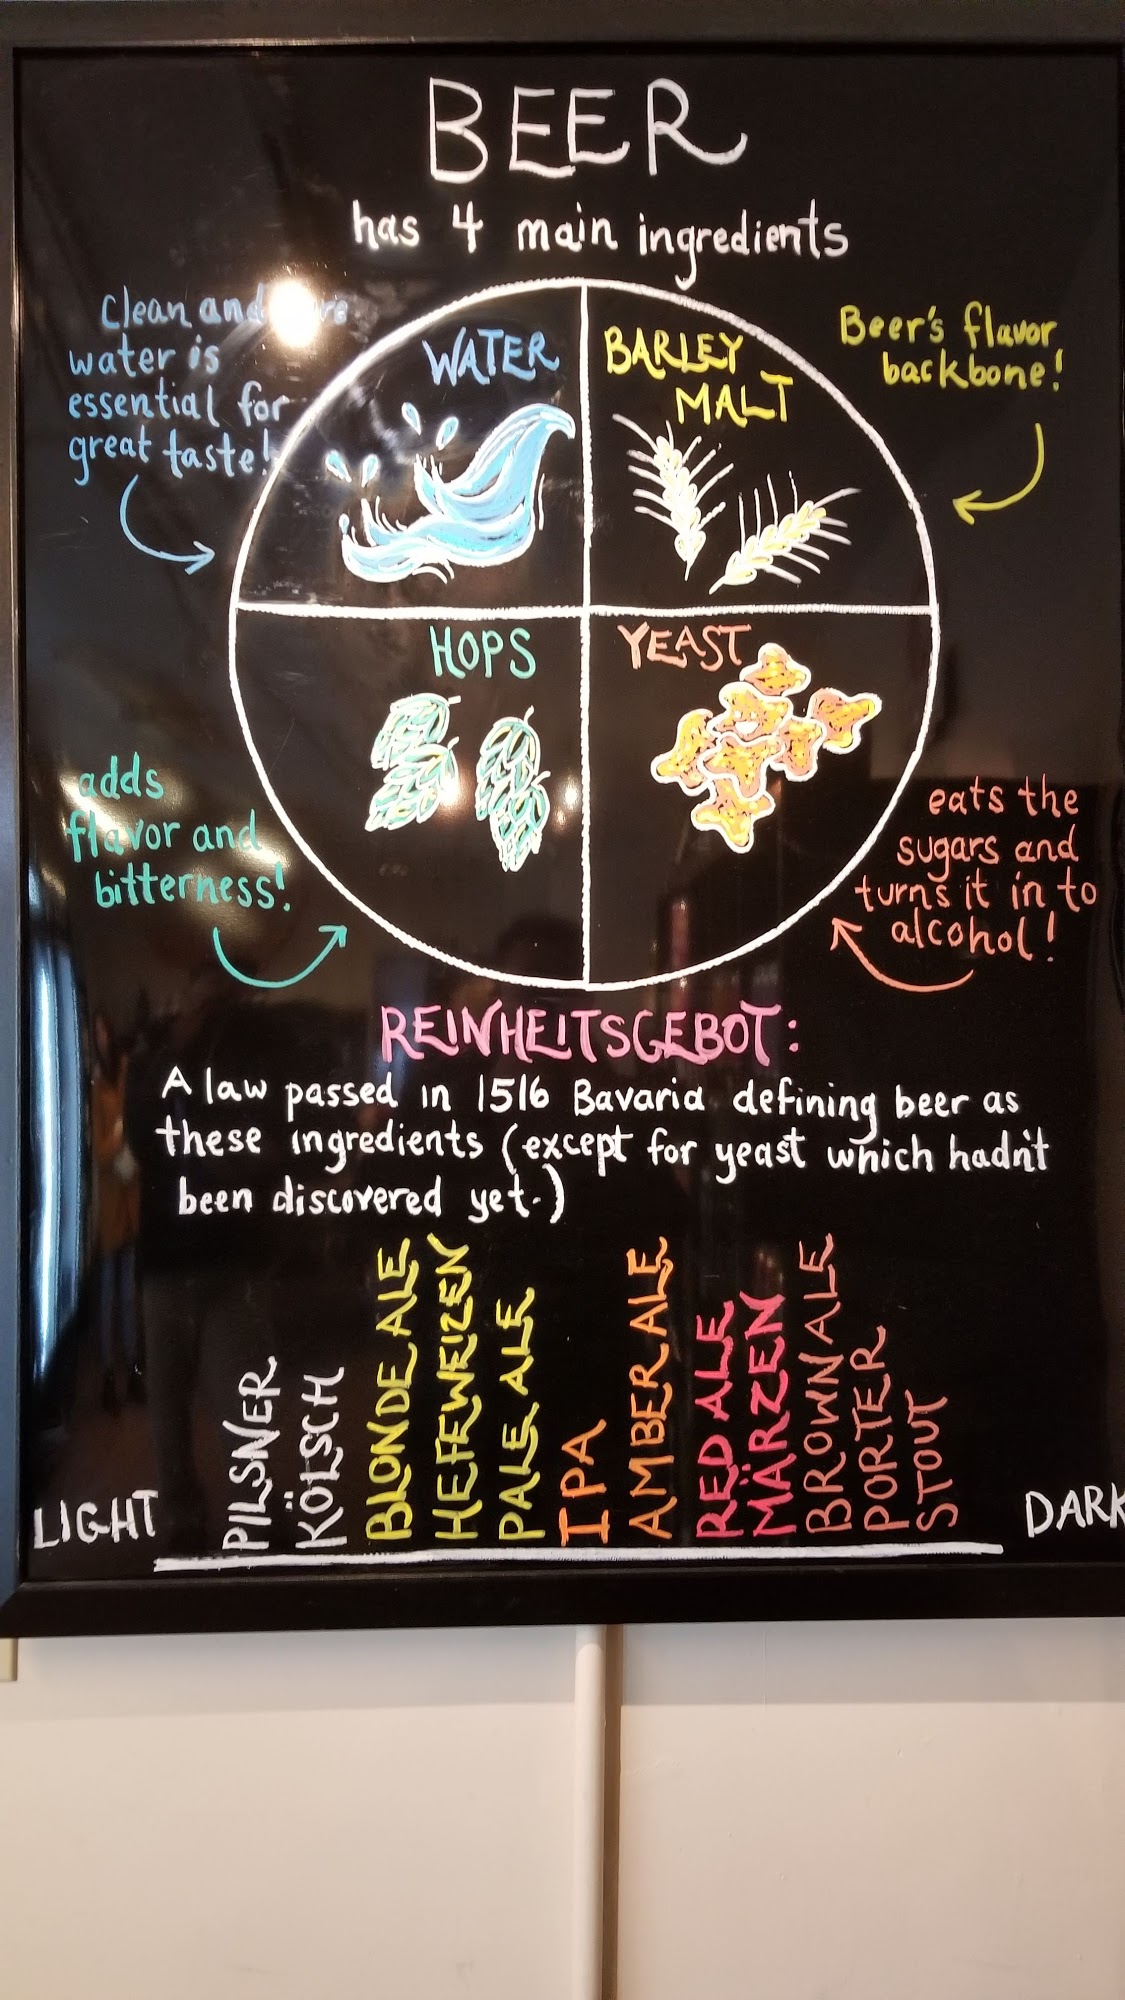 BEER
has 4 main ingredients
Clean and
water is
essential for
great taste!
WATER
BARLEY
MALT
Beer's flavor
backbone!
HOPS
adds
flavor and
bitterness!
YEAST
eats the
sugars and
turns it in to
alcohol!
REINHEITSGEBOT:
A law passed in 1516 Bavaria defining beer as
these ingredients (except for yeast which hadn't
been discovered yet.)
LIGHT
PILSNER
KÖLSCH
BLONDE ALE
HEFEWEIZEN
PALE ALE
IPA
AMBER ALE
RED ALE
MÄRZEN
BROWN ALE
PORTER
STOUT
DARK